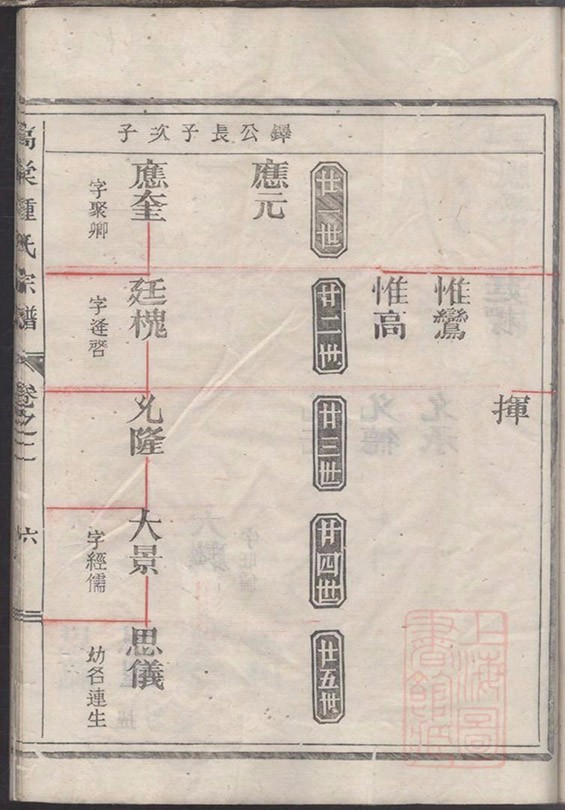 揮
惟鸞
惟高
廿一世
廿二世
廿三世
廿四世
廿五世
鐸公長子次子
應元
應奎
字聚卿
廷槐
字逢啓
允隆
大景
字經儒
思儀
幼名連生
鍾氏宗譜
卷之二
六
上海圖
書館藏